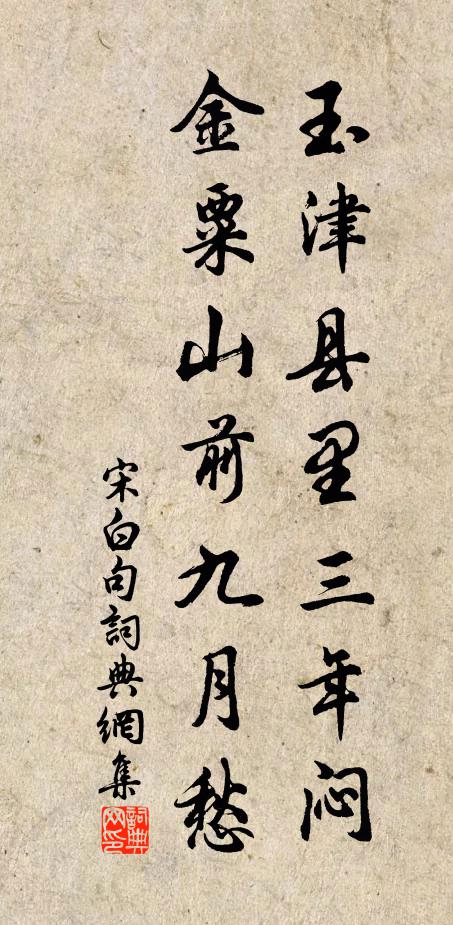 玉津县里三年闷
金粟山前九月愁
宋白句詞典網集
詞典
网印